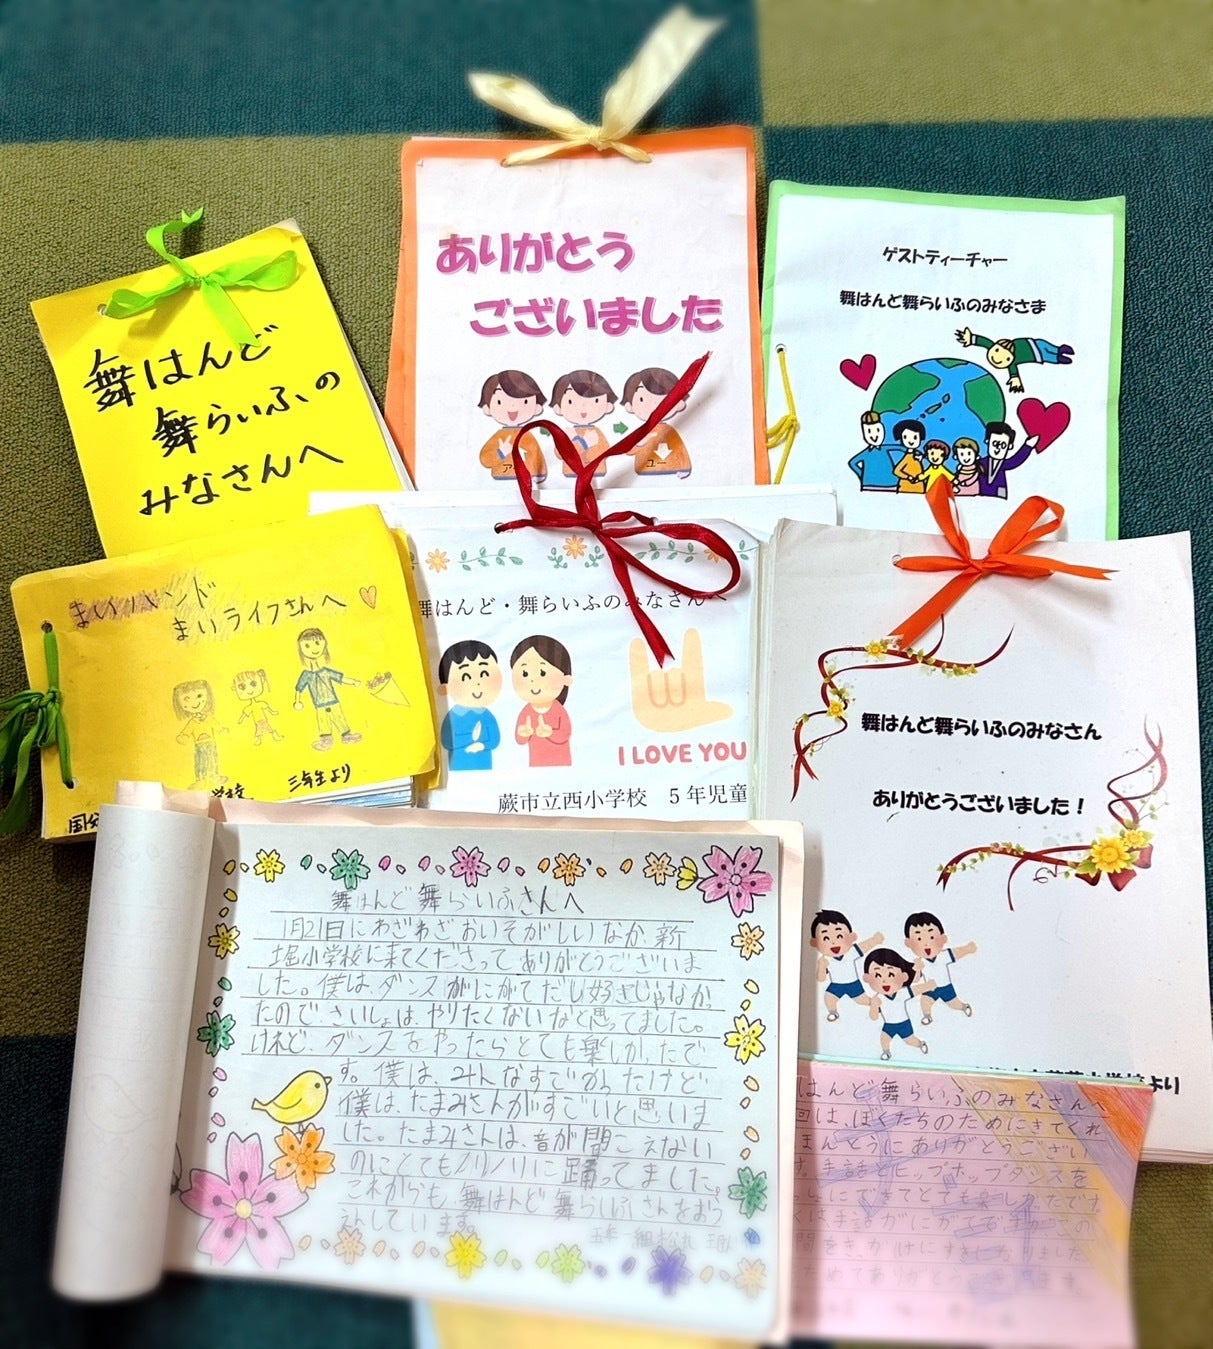 舞はんど
舞らいふの
みなさんへ
ありがとう
ございました
ゲストティーチャー
舞はんど舞らいふのみなさま
まいハンド
まいライフさんへ
三年生より
舞はんど・舞らいふのみなさんへ
I LOVE YOU
蕨市立西小学校 5年児童
舞はんど舞らいふのみなさん
ありがとうございました!
より
舞はんど舞らいふさんへ
1月21日にわざわざおいそがしいなか、新
堀小学校に来てくださってありがとうございま
した。僕は、ダンスがにがてだし好きじゃなかっ
たので、さいしょは、やりたくないなと思ってました。
けれど、ダンスをやったらとても楽しかったで
す。僕は、みんなすごかったけど
僕は、たまみさんがすごいと思いま
した。たまみさんは、音が聞こえない
のにとてもノリノリに踊ってました。
これからも舞はんど舞らいふさんをおう
えんしています。
はんど舞らいふのみなさんへ
回は、ぼくたちのためにきてくれ
ほんとうにありがとうござい
す。手話とヒップホップダンスを
しょにできてとても楽しかったです
くは手話がにがてですが、この
間をきっかけにすきになりました
ためてありがとう